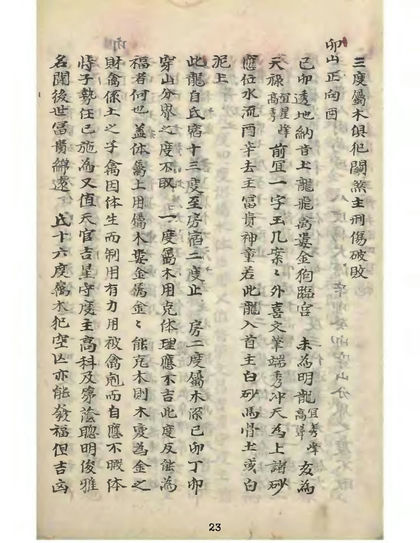 三度屬木俱犯關煞主刑傷破敗
卯山正向酉
己卯透地納音土龍危婁金狗臨宮 未為明龍宜秀峰高聳 亥為
天祿宜星峰高秀 前宜一字玉几案〻外喜文筆端秀冲天為上諸砂
應位水流酉辛去主富貴神童若此龍入首主白砂馬骨土或白
泥土
此龍自氐宿十三度至房宿二度止 房二度屬木係己卯丁卯
穿山分界之度不取 一度屬木用克体理應不吉此度反能為
福者何也蓋体屬土用屬木婁金属金〻能克木則木变為金之
財禽係土之子禽因体生而制用有力用被禽剋而自應不暇体
恃子勢任己施為又值天官吉星守度主高科及第蔭聰明俊雅
名聞後世富貴綿遠 氐十六度屬木犯空亡亦能發福但吉凶
23